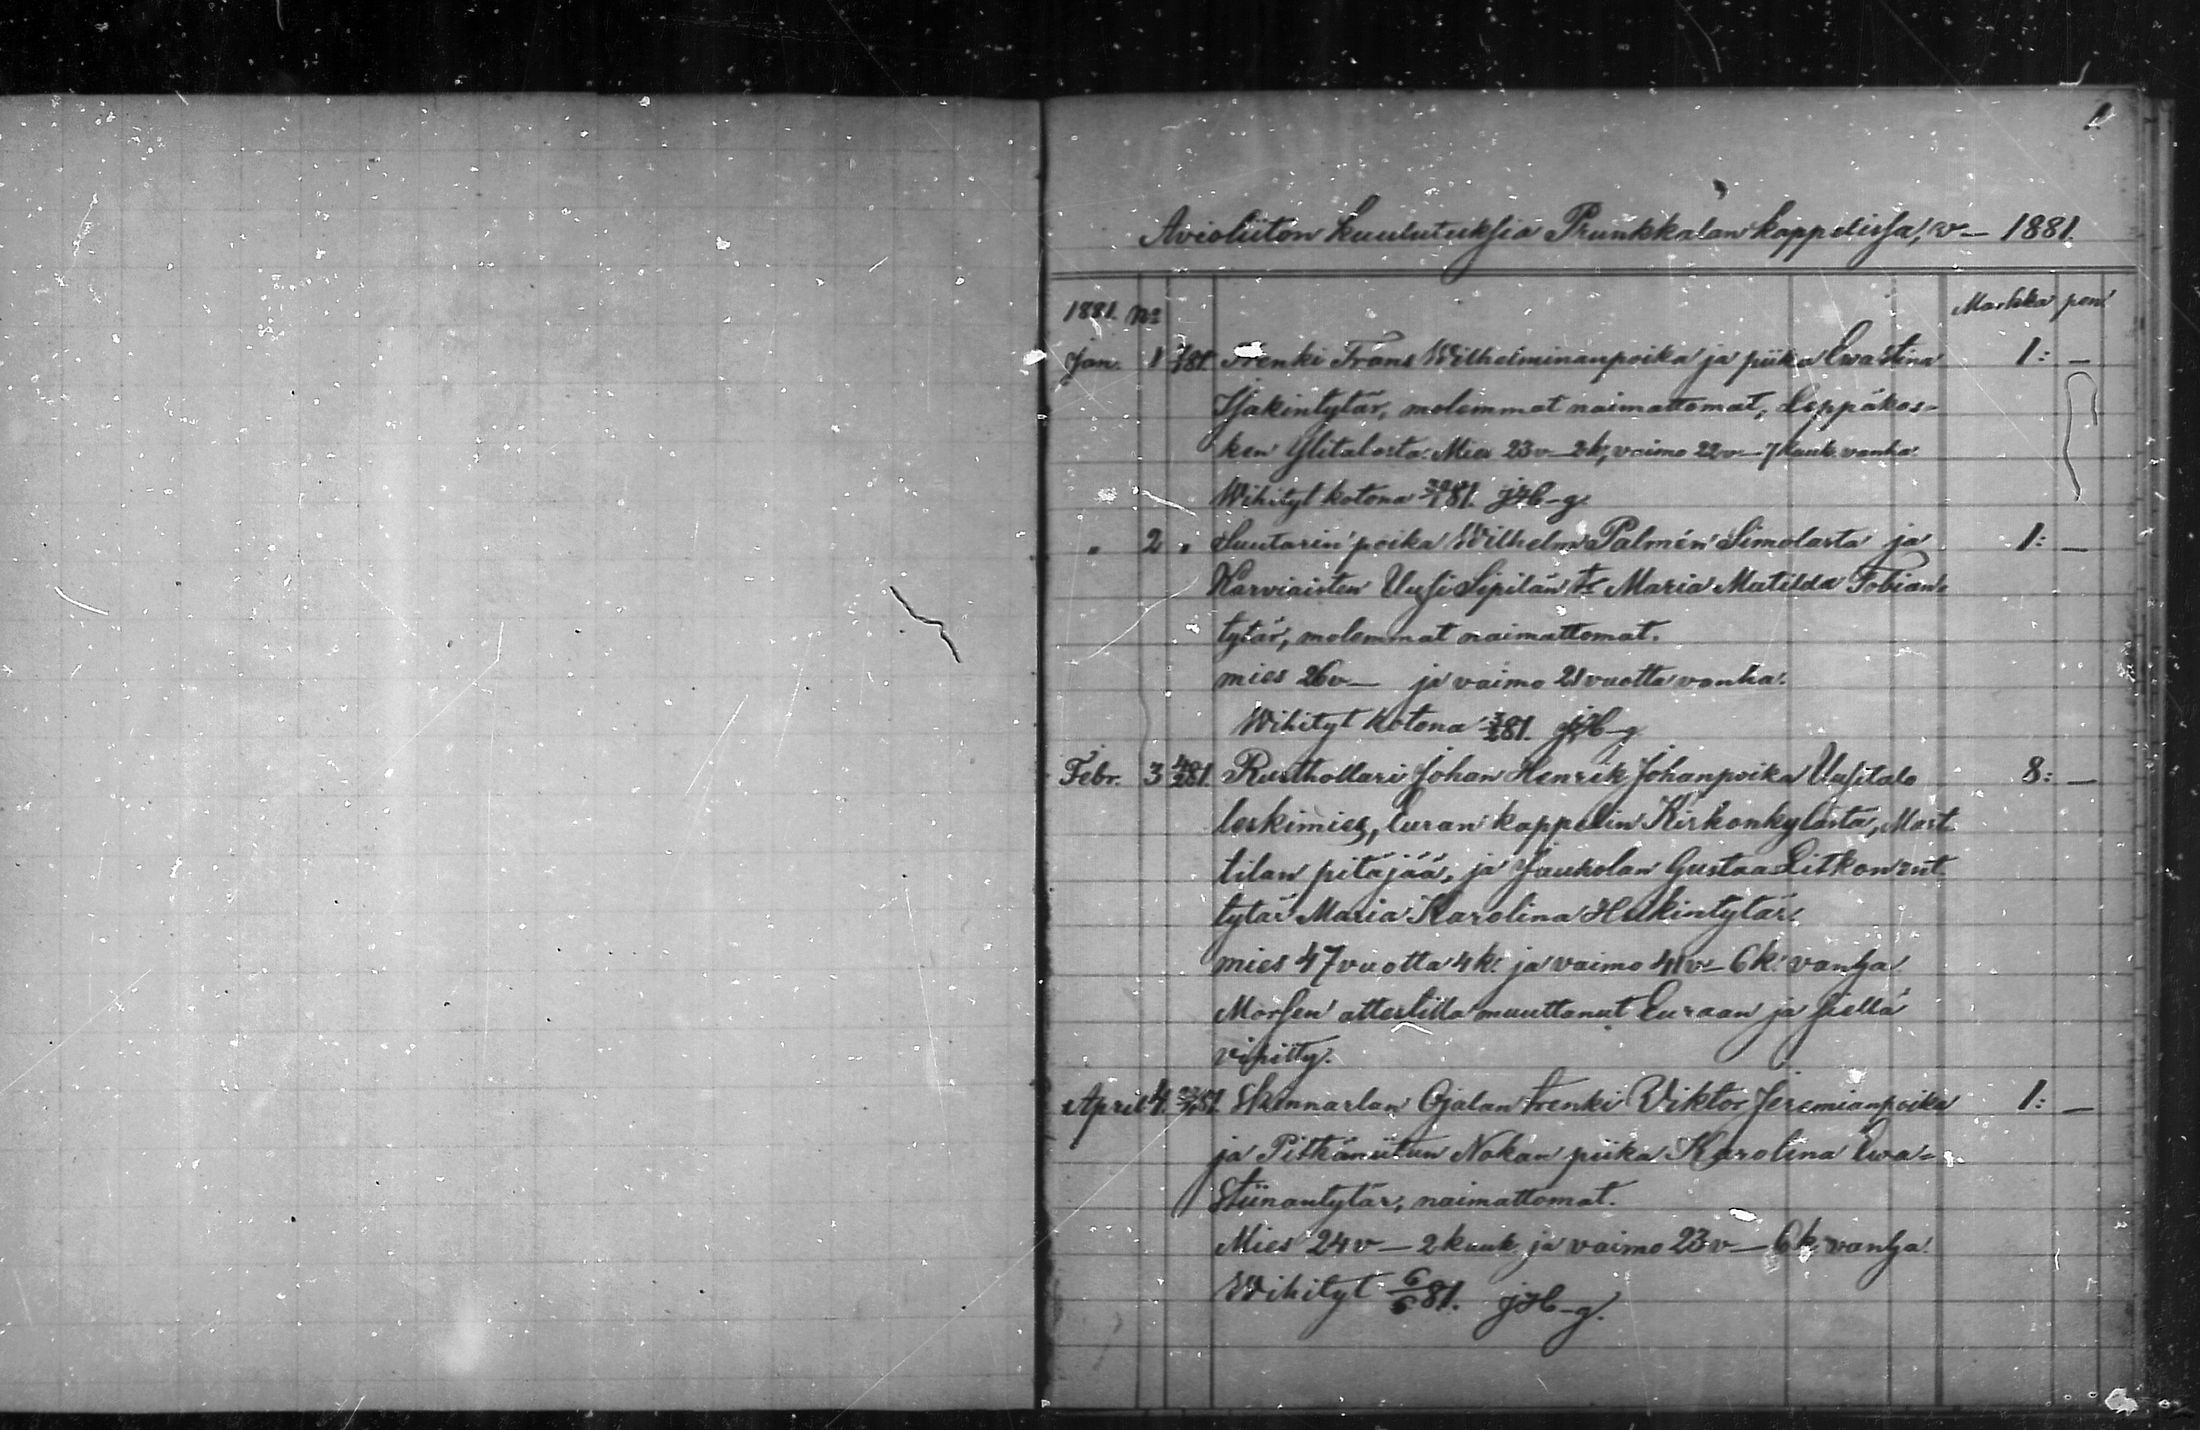 1.
Avioliiton kuulutuksia Prunkkalan kappelissa, v. 1881.
1881. No Markka pen
Jan. 1 /81. Trenki Frans Wilhelminanpoika ja piika Ewa Stina 1: —
Isakintytär, molemmat naimattomat, Leppäkos-
ken Ylitalosta. Mies 23 v. 2 k, vaimo 22 v. 7 kauk. vanha.
Wihityt kotona 81.
" 2 " Suutarin poika Wilhelm Palmén Simolasta ja 1: —
Karviaisten Uusi Sipilän tr Maria Matilda Tobian-
tytär, molemmat naimattomat.
mies 26 v— ja vaimo 21 vuotta vanha.
Wihityt kotona 81.
Febr. 3 81. Rusthollari Johan Henrik Johanpoika Uusitalo 8: —
leskimies, Euran kappelin Kirkonkylästä, Mart-
tilan pitäjää, ja Gustaa
tytär Maria Karolina Heikintytär.
mies 47 vuotta 4 k. ja vaimo 41 v— 6 k. vanha.
Morsen attestilla muuttanut Euraan ja siellä
vihitty.
April 4. 81. Skinnarlan Ojalan trenki Viktor Jeremianpoika 1: —
ja Pitkäniitun Nokan piika Karolina Ewa-
Stiinantytär, naimattomat.
Mies 24 v— 2 kauk. ja vaimo 23 v— 6 k. vanha.
Wihityt 6/6 81.